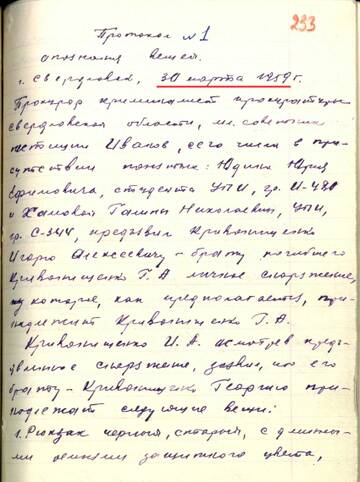 233
Протокол №1
опознания вещей.
г. Свердловск, 30 марта 1959 г.
Прокурор криминалист прокуратуры
Свердловской области, мл. советник
юстиции Иванов, сего числа в при-
сутствии понятых: Юдина Юрия
Ефимовича, студента УПИ, гр. И-
и Хамовой Галины Николаевны, УПИ,
гр. С-344, предъявил Кривонищенко
Игорю Алексеевичу - брату погибшего
Кривонищенко Г.А личное снаряжение,
которое, как предполагается, при-
надлежит Кривонищенко Г.А.
Кривонищенко И.А. осмотрев предъ-
явленное снаряжение, заявил, что его
брату - Кривонищенко Георгию при-
надлежат следующие вещи:
1. Рюкзак черный, старый, с длинны-
ми ремнями защитного цвета,